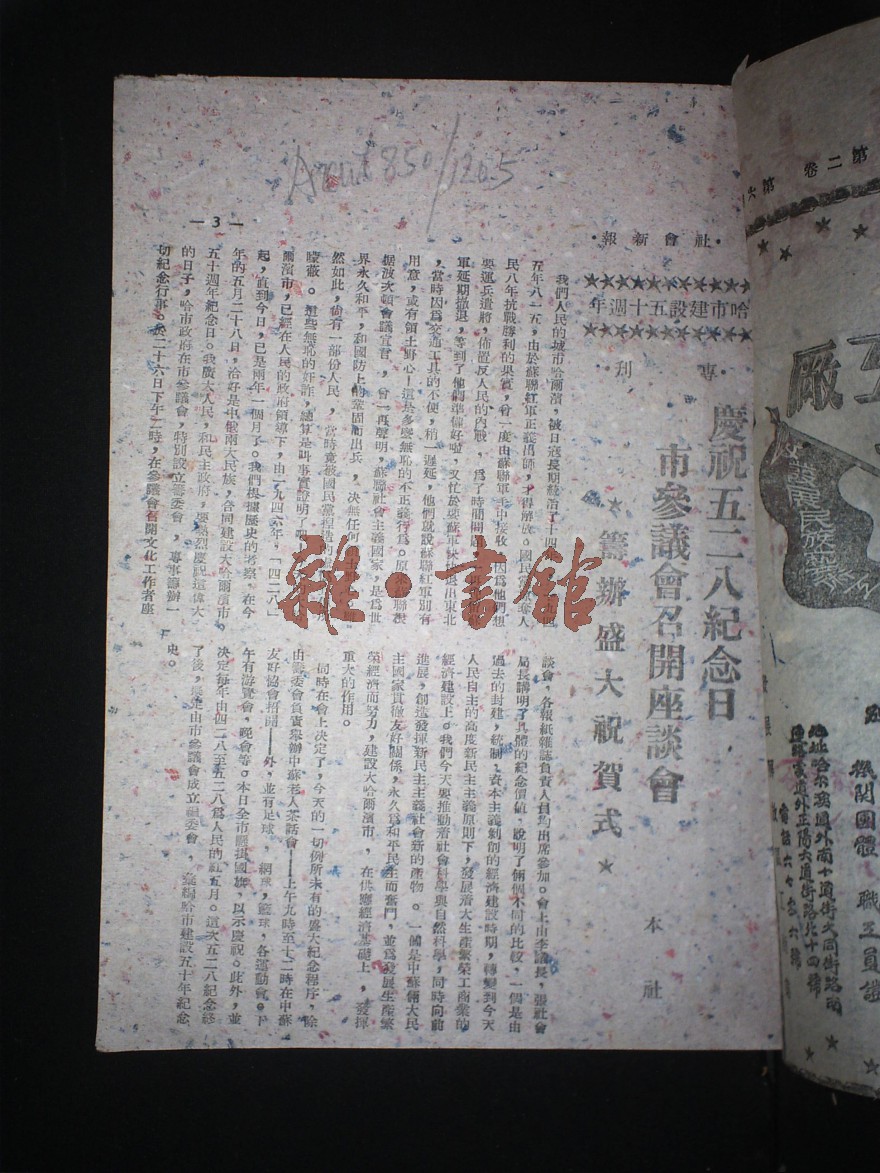 Arcut 850/1205
— 3 —
·社會新報·
哈市建設五十週年
·專刊·
慶祝五二八紀念日
市參議會召開座談會
★籌辦盛大祝賀式★
本社
我們人民的城市哈爾濱,被日寇長期統治了十四年,一九四
五年八一五,由於蘇聯紅軍正義出師,才得解放。國民黨
民八年抗戰勝利的果實,曾一度由蘇聯軍手中接收,因爲他們想
要運兵遣將,佈置反人民的內戰,爲了時間問題,
軍延期撤退,等到了他們準備好啦,又忙於要蘇軍快快退出東北
,當時因爲交通工具的不便,稍一遲延,他們就說蘇聯紅軍別有
用意,或有領土野心!這是多麽無恥的不正義行爲。原來蘇聯根
据波次頓會議宣言,曾一再聲明,蘇聯社會主義國家,是爲世
界永久和平,和國防上的鞏固而出兵,決無任何
然如此,倘有一部份人民,當時竟被國民黨捏造的
矇蔽。這些無恥的奸詐,總算是叫事實證明了
爾濱市,已經在人民的政府領導下,由一九四六年,「四二八」
起,直到今日,已是兩年一個月了。我們根據歷史的考察,在今
年的五月二十八日,恰好是中俄兩大民族,合同建設大哈爾濱市。
五十週年紀念日。我廣大人民,和民主政府,要熱烈慶祝這偉大
的日子,哈市政府在市參議會,特別設立籌委會,專事籌辦一
切紀念行事。於二十六日下午二時,在參議會召開文化工作者座
談會,各報紙雜誌負責人員均出席參加。會上由李議長,張社會
局長講明了具體的紀念價值,說明了倆個不同的比較,一個是由
過去的封建,統制,資本主義剝削的經濟建設時期,轉變到今天
人民自主的高度新民主主義原則下,發展着大生產繁榮工商業的
經濟建設上。我們今天要推動着社會科學與自然科學,同時向前
進展,創造發揮新民主主義社會新的產物。一個是中蘇倆大民
主國家貫徹友好關係,永久爲和平民主而奮鬥,並爲發展生產繁
榮經濟而努力,建設大哈爾濱市,在供應經濟基礎上,發揮
重大的作用。
同時在會上決定了,今天的一切例所未有的盛大紀念程序,除
由籌委會負責舉辦中蘇老人茶話會——上午九時至十二時在中蘇
友好協會招開——外,並有足球 網球,籃球,各運動會。下
午有游覽會,晚會等。本日全市懸掛國旗,以示慶祝。此外,並
決定每年由四二八至五二八爲人民的紅五月。這次五二八紀念終
了後,規定由市參議會成立組委會,彙編哈市建設五十年紀念
史。
雜·書館
第二卷 第六
工厰
發展民族
機關團體 職工員
地址哈尔濱道外南十道街大同街路南
道外正陽大道街路北十四號
電話六